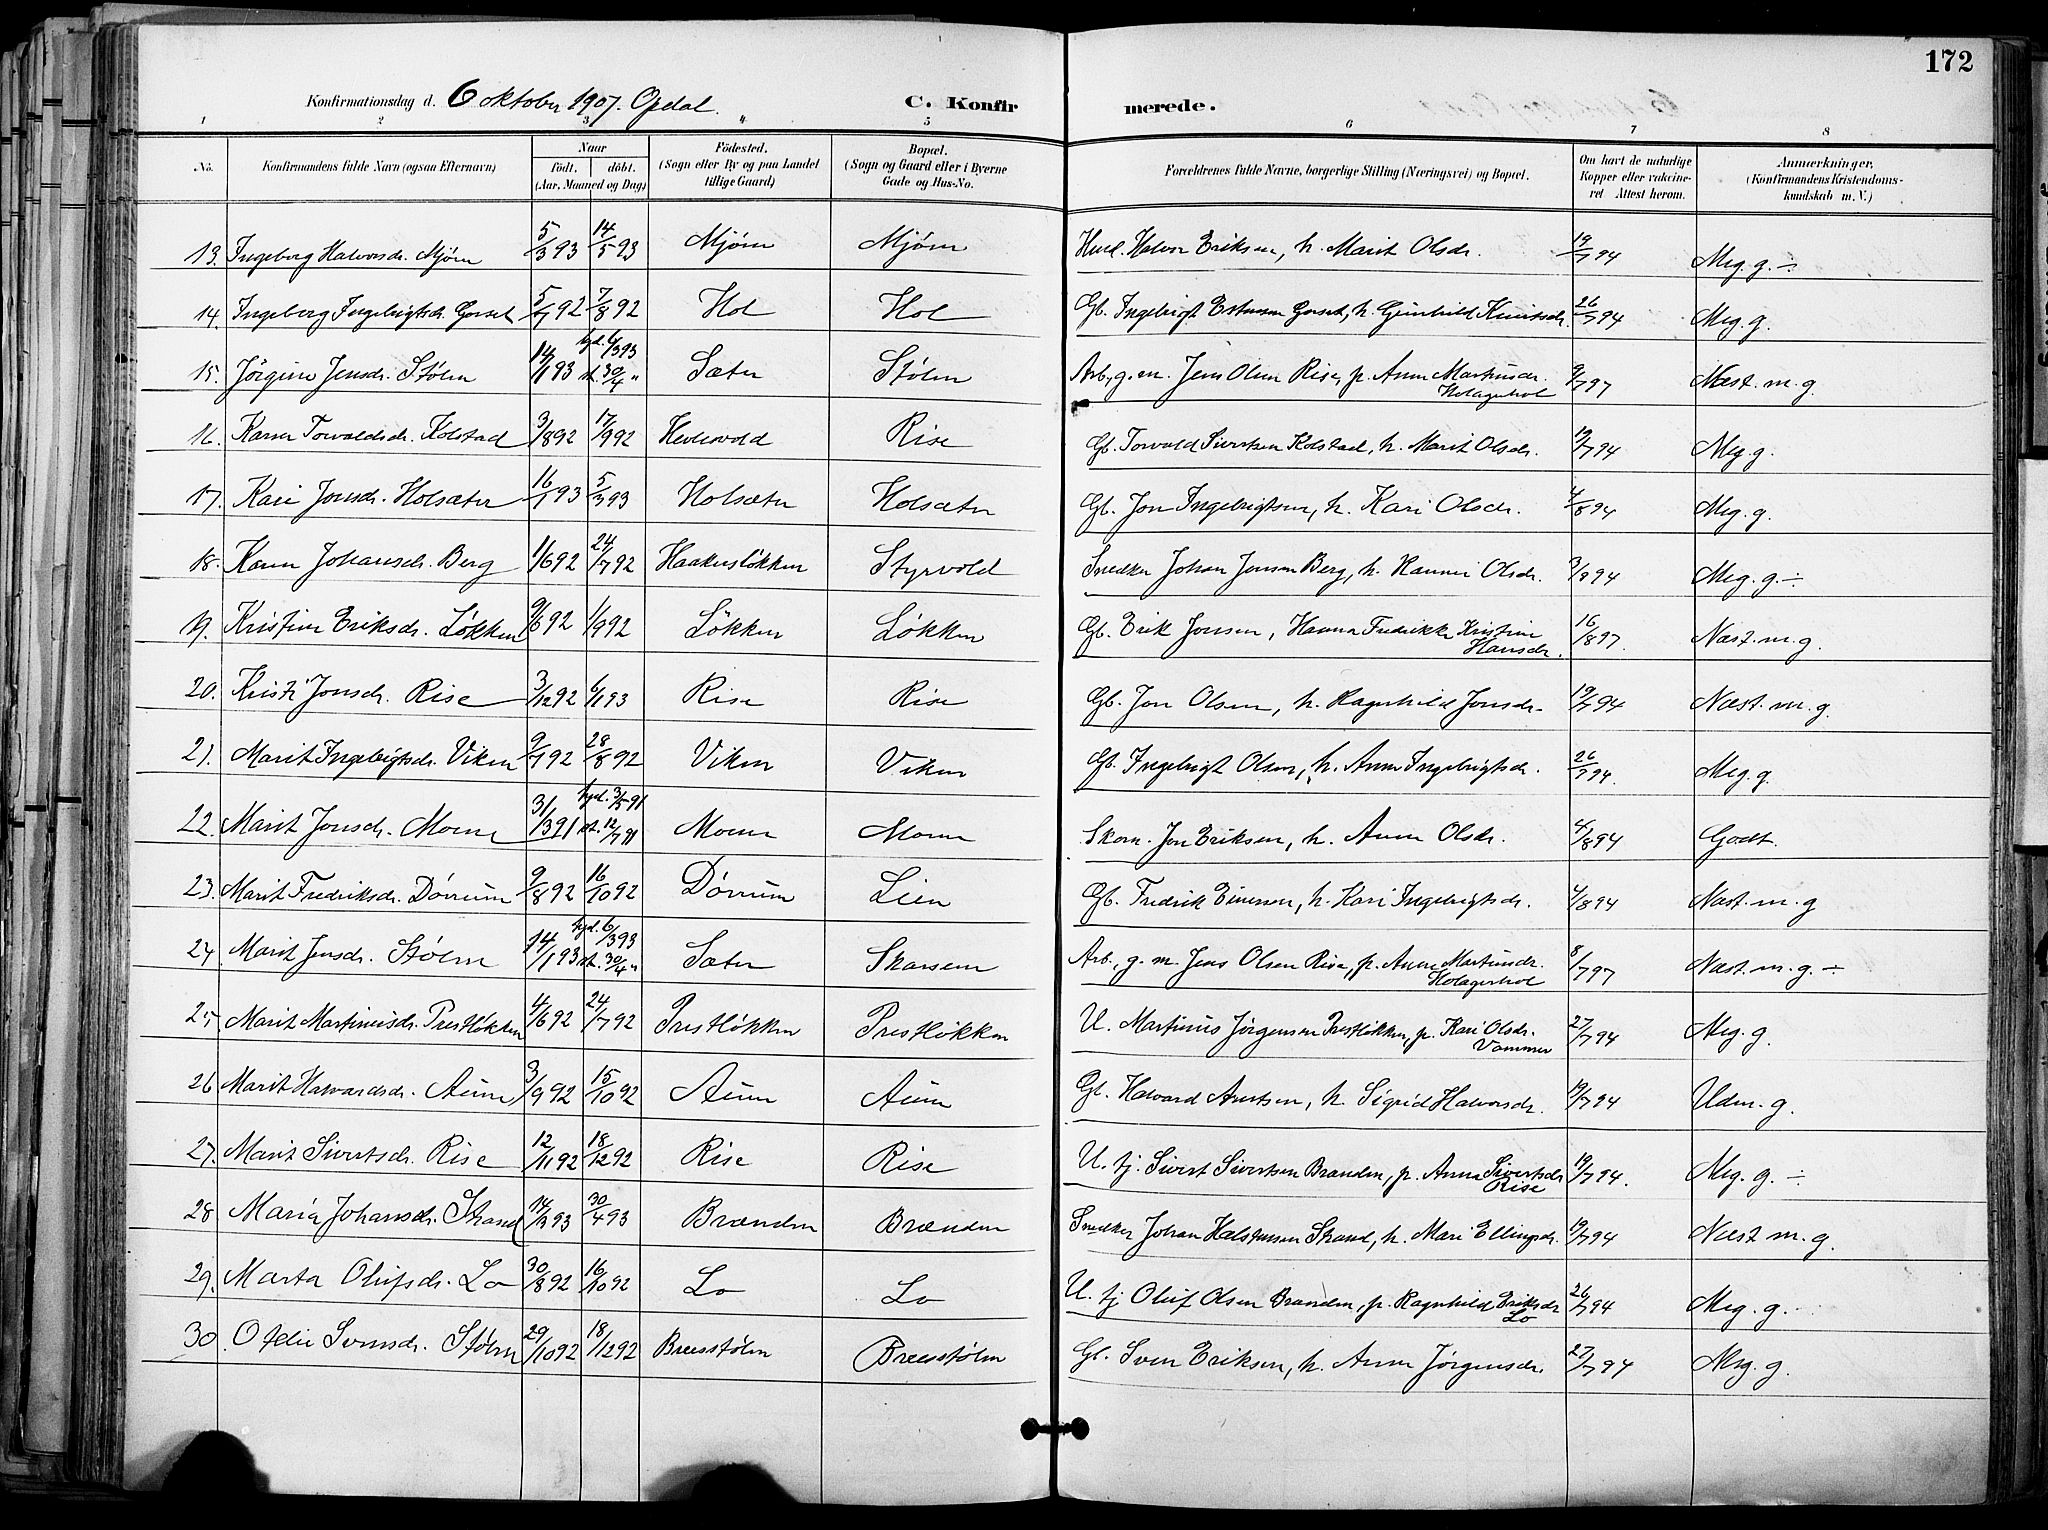 172
Konfirmationsdag d. 6 oktober 1907. Opdal. C. Konfirmerede.
1 2 3 4 5 6 7 8
No. Konfirmandens fulde Navn (ogsaa Efternavn) Naar födt. döbt. (Aar, Maaned og Dag) Födested. (Sogn eller By og paa Landet tillige Gaard) Bopæl. (Sogn og Gaard eller i Byerne Gade og Hus-No. Forældrenes fulde Navne, borgerlige Stilling (Næringsvei) og Bopæl. Om havt de naturlige Kopper eller vakcineret Attest herom. Anmærkninger. (Konfirmandens Kristendomskundskab m. V.)
13. Ingeborg Halvorsdr. Mjøen 5/3 93 14/5 93 Mjøen Mjøen Halvor Eriksen, h. Marit Olsdr. 19/7 94 Meg. g. ÷
14. Ingeborg Ingebrigtsdr. Gorset 5/7 92 7/8 92 Hol Hol Gb. Ingebrigt Estensen Gorset, h. Gunhild Knutsdr. 26/7 94 Meg. g.
15. Jörgine Jensdr. Stølen 14/1 93 hjd. 6/3 93 st. 30/4 " Sæter Stølen Arb., g. m. Jens Olsen Rise, p. Anne Martinsdr. Holagerhol 9/7 97 Næst. m. g.
16. Karen Torvaldsdr. Kolstad 3/8 92 17/9 92 Hevlevold Rise Gb. Torvald Sivertsen Kolstad, h. Marit Olsdr. 19/7 94 Meg. g.
17. Kari Jonsdr. Holsæter 16/1 93 5/3 93 Holsæter Holsæter Gb. Jon Ingebrigtsen, h. Kari Olsdr. 4/8 94 Meg. g.
18. Karen Johansdr. Berg 1/6 92 24/7 92 Haakensløkken Styrvold Snedker Johan Jensen Berg, h. Olsdr. 3/8 94 Meg. g. ÷
19. Kristine Eriksdr. Løkken 9/6 92 1/9 92 Løkken Løkken Gb. Erik Jonsen, Hanna Fredrikke Kristine Hansdr. 16/8 97. Næst. m. g.
20. Kristi Jonsdr. Rise 3/12 92 6/1 93 Rise Rise Gb. Jon Olsen, h. Ragnhild Jonsdr. 19/7 94 Næst. m. g.
21. Marit Ingebrigtsdr. Viken 9/7 92 28/8 92 Viken Viken Gb. Ingebrigt Olsen, h. Anne Ingebrigtsdr. 26/7 94. Meg. g.
22. Marit Jonsdr. Moene 31/3 91 hjd. 3/5 91 st. 12/7 91 Moene Moene Skom. Jon Eriksen, h. Anne Olsdr. 4/8 94 Godt.
23. Marit Fredriksdr. Dørrum 9/8 92 16/10 92 Dørrum Lien Gb. Fredrik Einersen, h. Kari Ingebrigtsdr. 4/8 94 Næst. m. g
24. Marit Jensdr. Stølen 14/1 93 hjd. 6/3 93 st. 30/4 " Sæter Skarsem Arb., g. m. Jens Olsen Rise, p. Anne Martinsdr. Holagerhol 8/7 97 Næst. m. g. ÷
25. Marit Martinusdr. Prestløkken 4/6 92 24/7 92 Prestløkken Prestløkken U. Martinus Jørgensen Prestløkken, p. Kari Olsdr. Vammer 27/7 94 Meg. g.
26 Marit Halvardsdr. Aune 3/9 92 15/10 92 Aune Aune Gb. Halvard Arntsen, h. Sigrid Halvorsdr. 19/7 94 Udm. g.
27. Marit Sivertsdr. Rise 12/11 92 18/12 92 Rise Rise U. tj. Sivert Sivertsen Brænden, p. Anne Sivertsdr Rise 19/7 94. Meg. g. ÷
28 Maria Johansdr. Strand 14/3 93 30/4 93 Brænden Brænden Snedker Johan Halstensen Strand, h. Mari Ellingsdr. 19/7 94 Næst m. g.
29. Marta Olufsdr. Lo 30/8 92 16/10 92 Lo Lo U. tj Oluf Olsen Brænden, p. Ragnhild Eriksdr Lo 26/7 94 Meg. g.
30. Ofelie Svensdr. Stølen 29/10 92 18/12 92 Breesstølen Breesstølen Gb. Sven Eriksen, h. Anne Jørgensdr. 27/7 94 Meg. g.